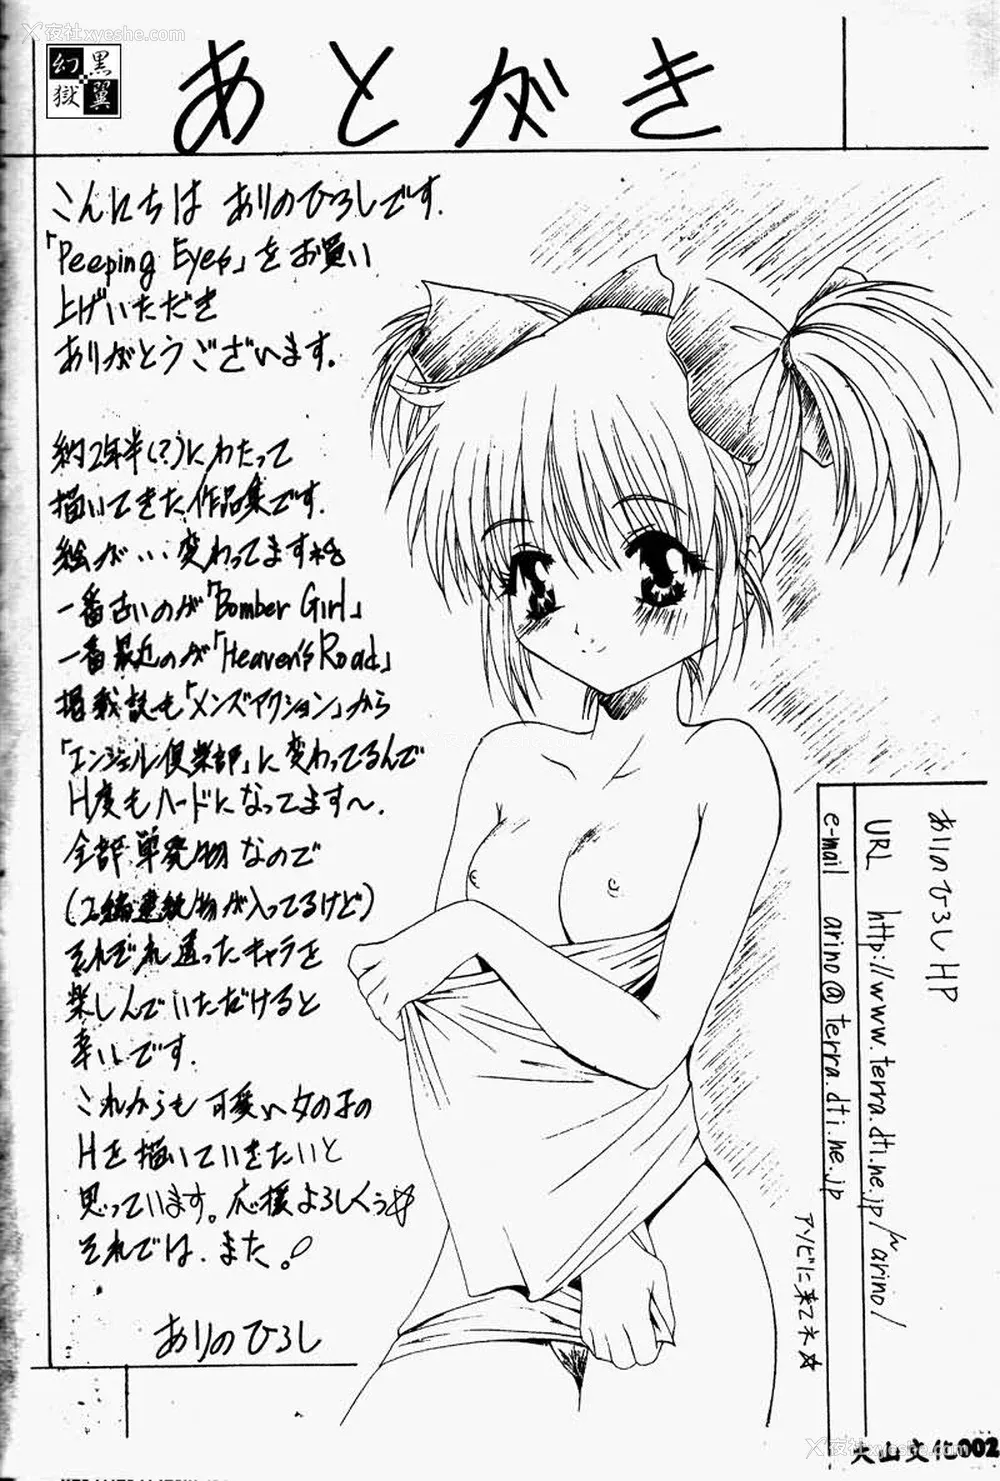 X夜社xyeshe.com
幻黒
獄翼
あとがき
こんにちは ありのひろしです.
「Peeping Eyes」をお買い
上げいただき
ありがとうございます.
約2年半(?)にわたって
描いてきた作品集です.
絵が・・・変わってます
一番古いのが「Bomber Girl」
一番最近のが「Heaven's Road」
掲載誌も「メンズアクション」から
「エンジェル倶楽部」に変わってるんで
H度もハードになってます〜.
全部単発物なので
(2編連続物が入ってるけど)
それぞれ違ったキャラを
楽しんでいただけると
幸いです.
これからも可愛い女の子の
Hを描いていきたいと
思っています。応援よろしくぅ☆
それでは、また。
ありのひろし
ありのひろしHP
URL http://www.terra.dti.ne.jp/~arino/
e-mail arino@terra.dti.ne.jp
アソビに来てネ☆
大山文化002
X夜社xyeshe.com